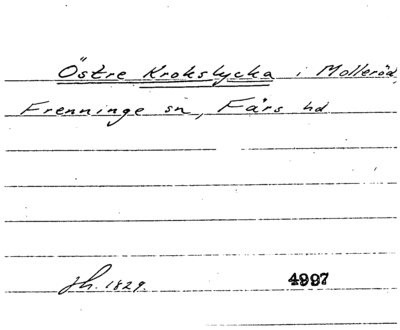 Östre Krokslycka i Molleröd,
Frenninge sn, Färs hd
Jh. 1829. 4997